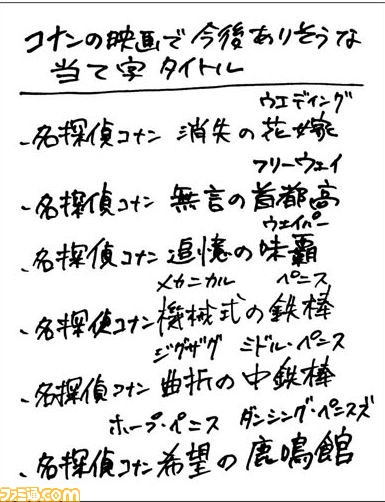 コナンの映画で今後ありそうな
当て字タイトル
ウエディング
・名探偵コナン 消失の花嫁
フリーウェイ
・名探偵コナン 無言の首都高
ウェイパー
・名探偵コナン 追憶の味覇
メカニカル ペニス
・名探偵コナン 機械式の鉄棒
ジグザグ ミドル・ペニス
・名探偵コナン 曲折の中鉄棒
ホープ・ペニス ダンシング・ペニスズ
・名探偵コナン 希望の鹿鳴館
ファミ通.com